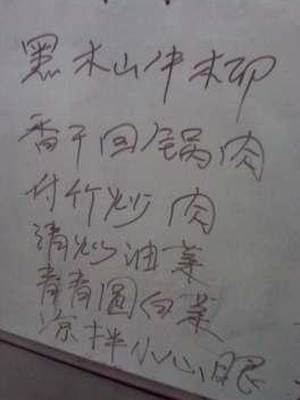 黑木山牛柳
香干回锅肉
付竹炒肉
清炒油菜
青青圆白菜
凉拌小心眼